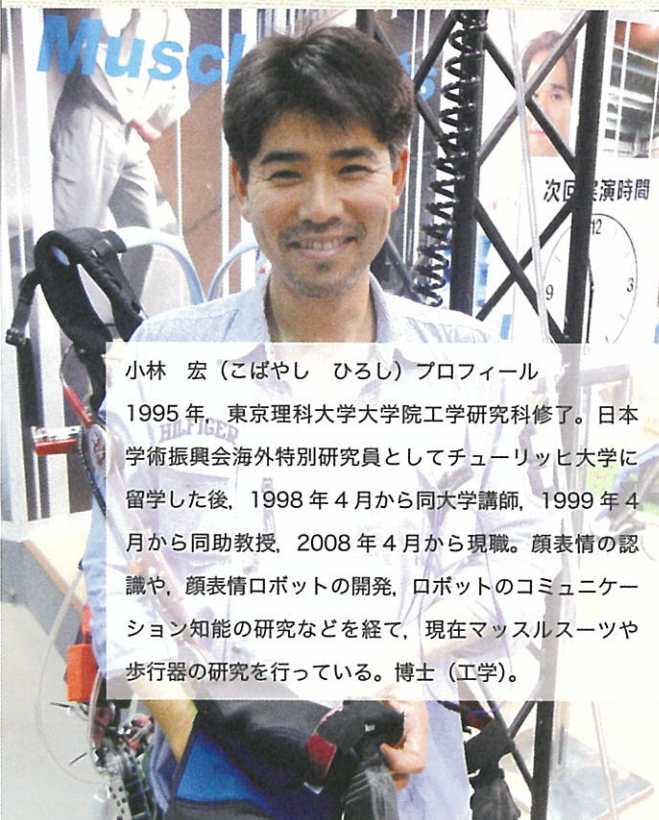 Muscl
s
次回実演時間
12
9
3
HILFIGER
小林　宏（こばやし　ひろし）プロフィール
1995年，東京理科大学大学院工学研究科修了。日本
学術振興会海外特別研究員としてチューリッヒ大学に
留学した後，1998年4月から同大学講師，1999年4
月から同助教授，2008年4月から現職。顔表情の認
識や，顔表情ロボットの開発，ロボットのコミュニケー
ション知能の研究などを経て，現在マッスルスーツや
歩行器の研究を行っている。博士（工学）。